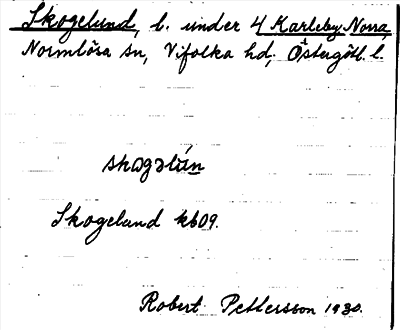 Skogelund, l. under 4 Karleby Norra,
Normlösa sn, Vifolka hd, Östergötl. l.
skogəlún
Skogelund kb09.
Robert Pettersson 1930.